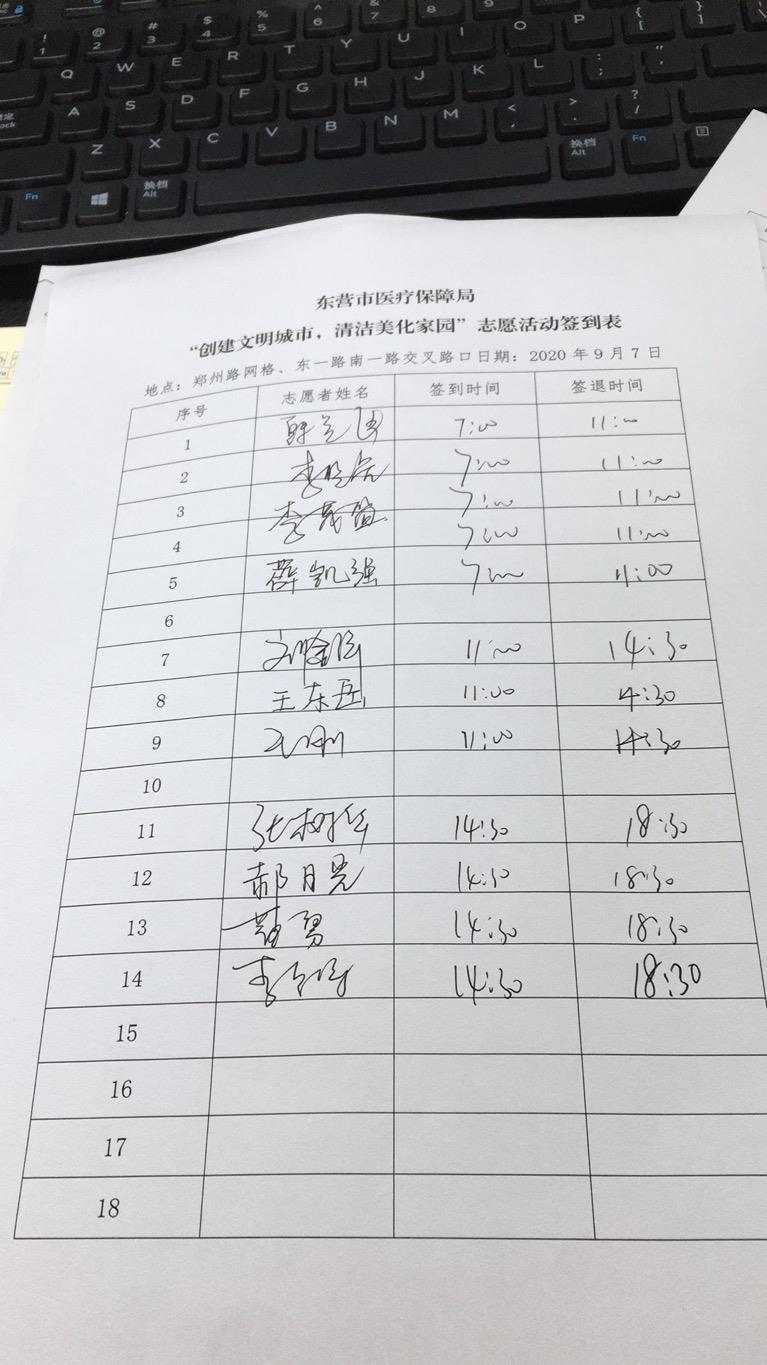 东营市医疗保障局
“创建文明城市，清洁美化家园”志愿活动签到表
地点：郑州路网格、东一路南一路交叉路口日期：2020 年 9 月 7 日
序号 志愿者姓名 签到时间 签退时间
1 7:00 11:00
2 7:00 11:00
3 7:00 11:00
4 7:00 11:00
5 薛凯强 7:00 11:00
6
7 11:00 14:30
8 王东岳 11:00 4:30
9 11:00 14:30
10
11 14:30 18:30
12 郝月亮 14:30 18:30
13 14:30 18:30
14 14:30 18:30
15
16
17
18